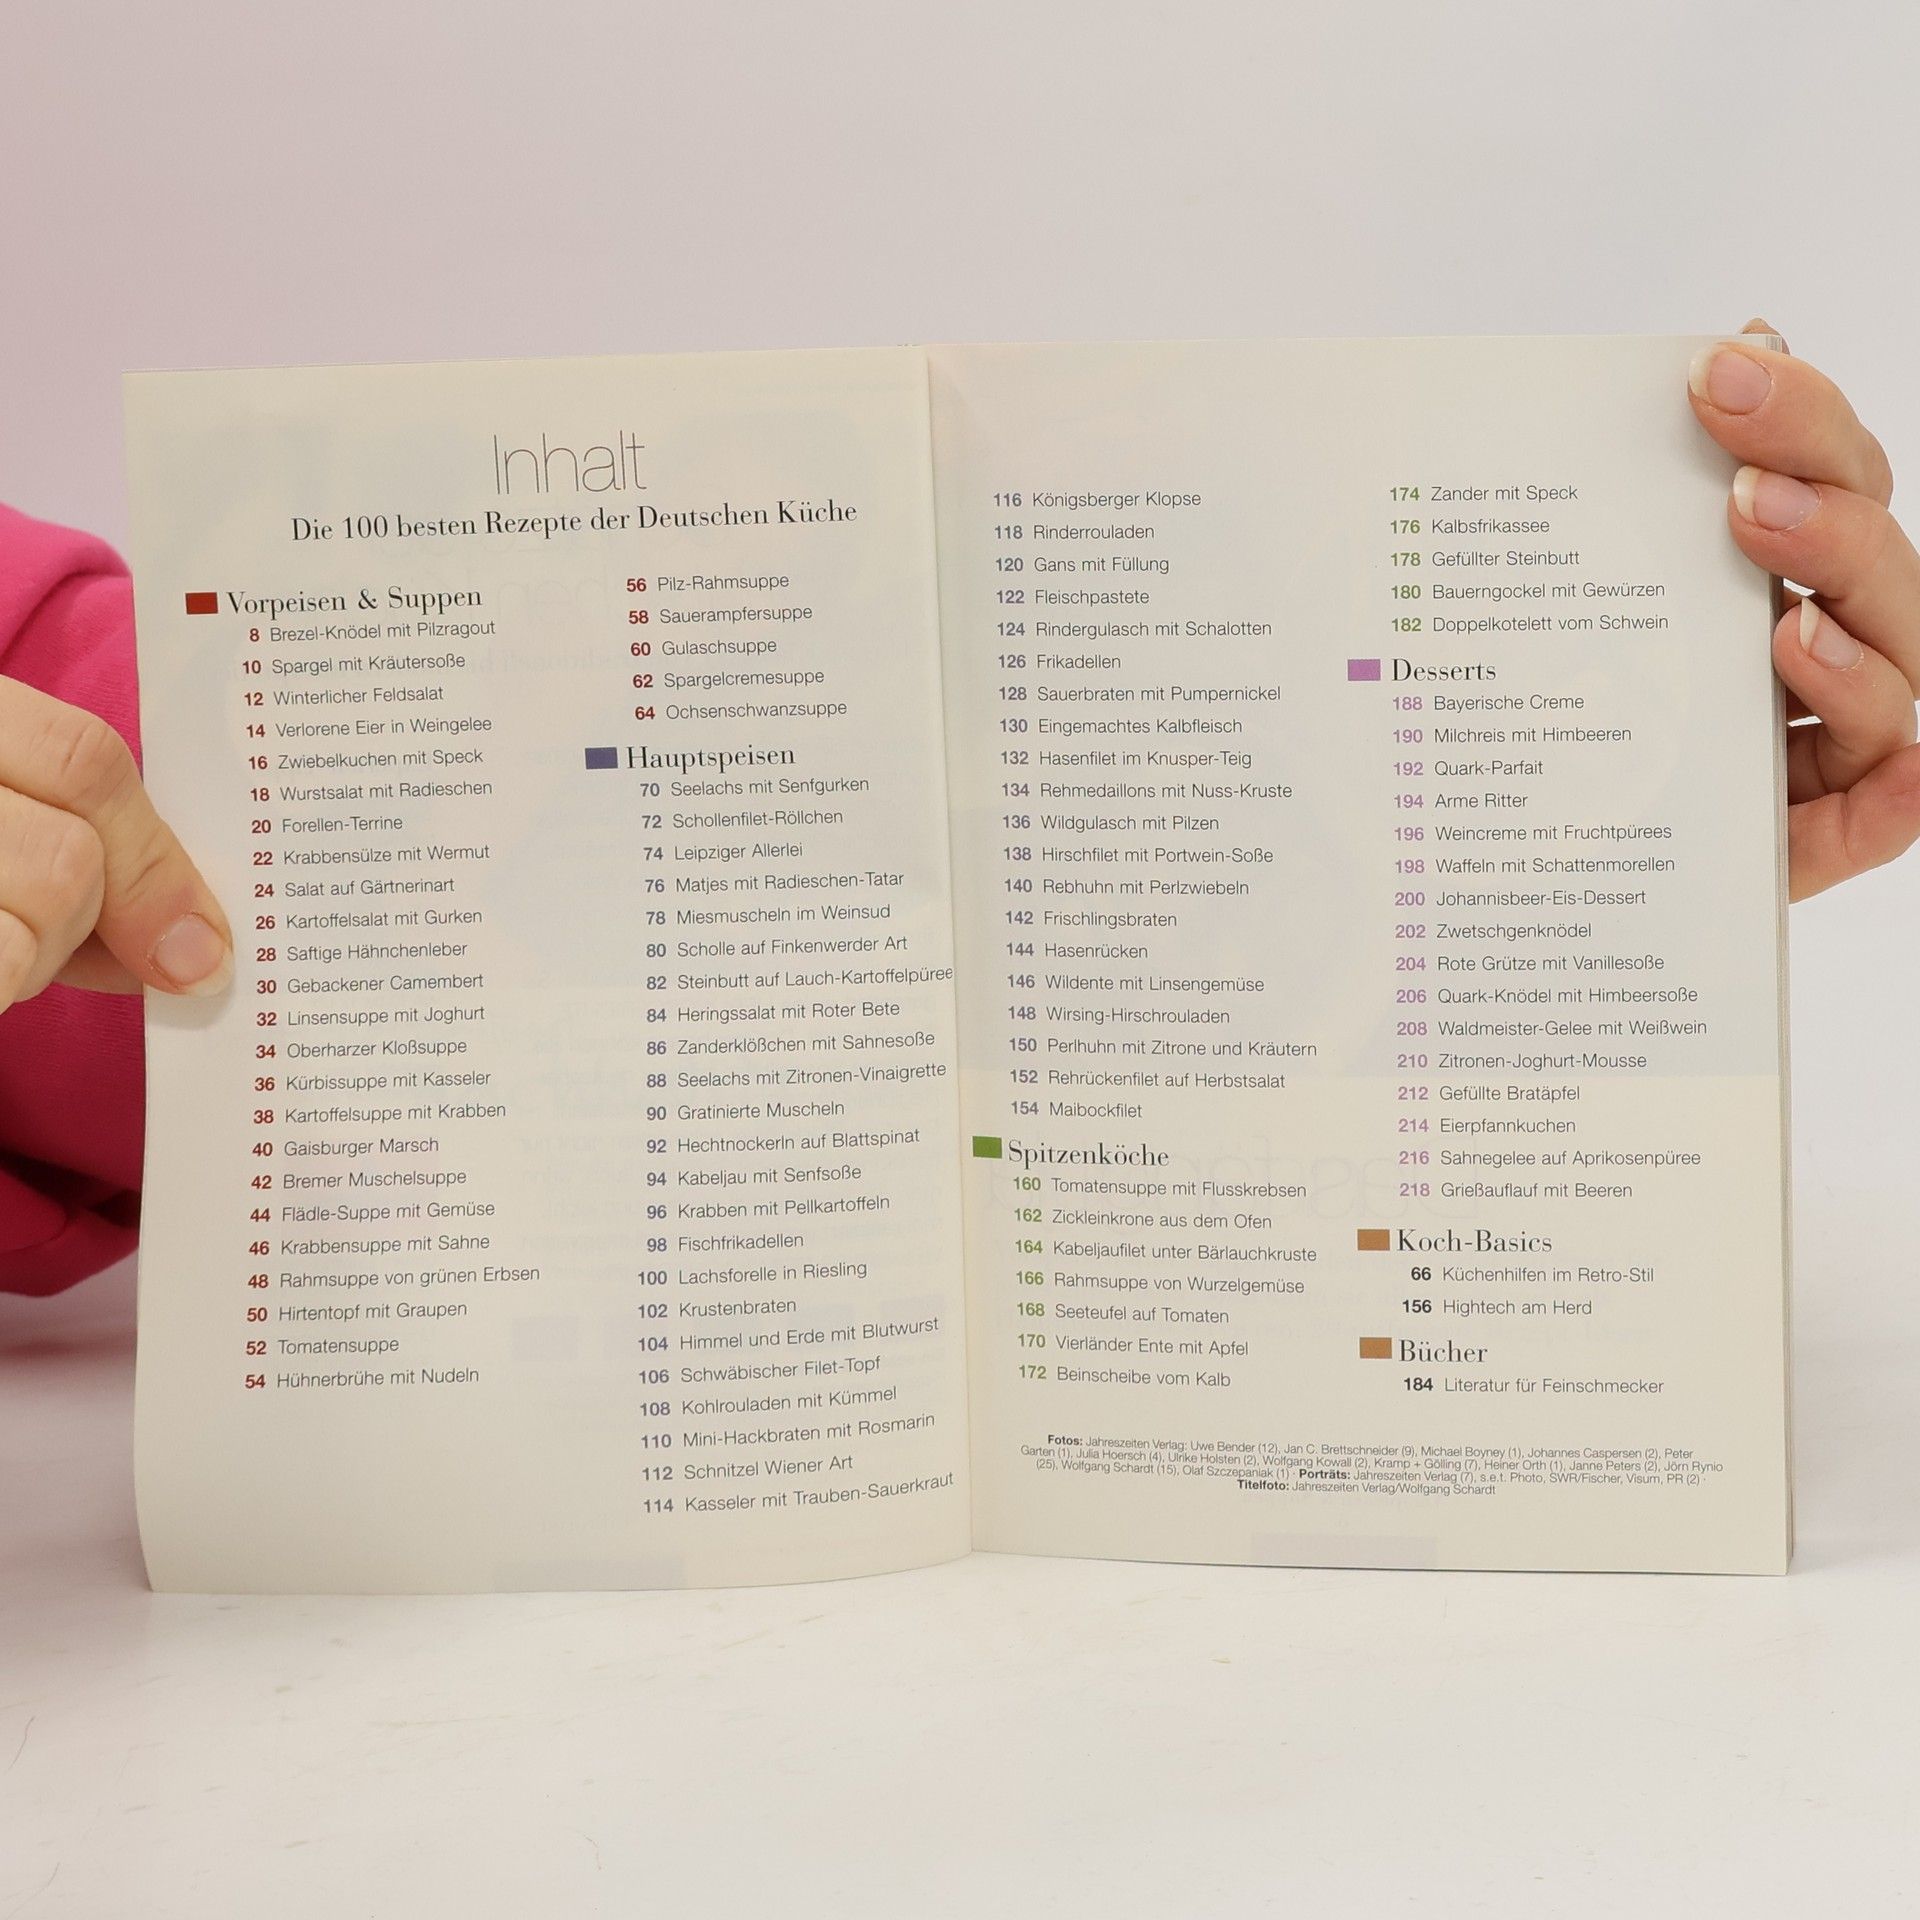 Inhalt
Die 100 besten Rezepte der Deutschen Küche
Vorpeisen & Suppen
8 Brezel-Knödel mit Pilzragout
10 Spargel mit Kräutersoße
12 Winterlicher Feldsalat
14 Verlorene Eier in Weingelee
16 Zwiebelkuchen mit Speck
18 Wurstsalat mit Radieschen
20 Forellen-Terrine
22 Krabbensülze mit Wermut
24 Salat auf Gärtnerinart
26 Kartoffelsalat mit Gurken
28 Saftige Hähnchenleber
30 Gebackener Camembert
32 Linsensuppe mit Joghurt
34 Oberharzer Kloßsuppe
36 Kürbissuppe mit Kasseler
38 Kartoffelsuppe mit Krabben
40 Gaisburger Marsch
42 Bremer Muschelsuppe
44 Flädle-Suppe mit Gemüse
46 Krabbensuppe mit Sahne
48 Rahmsuppe von grünen Erbsen
50 Hirtentopf mit Graupen
52 Tomatensuppe
54 Hühnerbrühe mit Nudeln
56 Pilz-Rahmsuppe
58 Sauerampfersuppe
60 Gulaschsuppe
62 Spargelcremesuppe
64 Ochsenschwanzsuppe
Hauptspeisen
70 Seelachs mit Senfgurken
72 Schollenfilet-Röllchen
74 Leipziger Allerlei
76 Matjes mit Radieschen-Tatar
78 Miesmuscheln im Weinsud
80 Scholle auf Finkenwerder Art
82 Steinbutt auf Lauch-Kartoffelpüree
84 Heringssalat mit Roter Bete
86 Zanderklößchen mit Sahnesoße
88 Seelachs mit Zitronen-Vinaigrette
90 Gratinierte Muscheln
92 Hechtnockerln auf Blattspinat
94 Kabeljau mit Senfsoße
96 Krabben mit Pellkartoffeln
98 Fischfrikadellen
100 Lachsforelle in Riesling
102 Krustenbraten
104 Himmel und Erde mit Blutwurst
106 Schwäbischer Filet-Topf
108 Kohlrouladen mit Kümmel
110 Mini-Hackbraten mit Rosmarin
112 Schnitzel Wiener Art
114 Kasseler mit Trauben-Sauerkraut
116 Königsberger Klopse
118 Rinderrouladen
120 Gans mit Füllung
122 Fleischpastete
124 Rindergulasch mit Schalotten
126 Frikadellen
128 Sauerbraten mit Pumpernickel
130 Eingemachtes Kalbfleisch
132 Hasenfilet im Knusper-Teig
134 Rehmedaillons mit Nuss-Kruste
136 Wildgulasch mit Pilzen
138 Hirschfilet mit Portwein-Soße
140 Rebhuhn mit Perlzwiebeln
142 Frischlingsbraten
144 Hasenrücken
146 Wildente mit Linsengemüse
148 Wirsing-Hirschrouladen
150 Perlhuhn mit Zitrone und Kräutern
152 Rehrückenfilet auf Herbstsalat
154 Maibockfilet
Spitzenköche
160 Tomatensuppe mit Flusskrebsen
162 Zickleinkrone aus dem Ofen
164 Kabeljaufilet unter Bärlauchkruste
166 Rahmsuppe von Wurzelgemüse
168 Seeteufel auf Tomaten
170 Vierländer Ente mit Apfel
172 Beinscheibe vom Kalb
174 Zander mit Speck
176 Kalbsfrikassee
178 Gefüllter Steinbutt
180 Bauerngockel mit Gewürzen
182 Doppelkotelett vom Schwein
Desserts
188 Bayerische Creme
190 Milchreis mit Himbeeren
192 Quark-Parfait
194 Arme Ritter
196 Weincreme mit Fruchtpürees
198 Waffeln mit Schattenmorellen
200 Johannisbeer-Eis-Dessert
202 Zwetschgenknödel
204 Rote Grütze mit Vanillesoße
206 Quark-Knödel mit Himbeersoße
208 Waldmeister-Gelee mit Weißwein
210 Zitronen-Joghurt-Mousse
212 Gefüllte Bratäpfel
214 Eierpfannkuchen
216 Sahnegelee auf Aprikosenpüree
218 Grießauflauf mit Beeren
Koch-Basics
66 Küchenhilfen im Retro-Stil
156 Hightech am Herd
Bücher
184 Literatur für Feinschmecker
Fotos: Jahreszeiten Verlag: Uwe Bender (12), Jan C. Brettschneider (9), Michael Boyney (1), Johannes Caspersen (2), Peter
Garten (1), Julia Hoersch (4), Ulrike Holsten (2), Wolfgang Kowall (2), Kramp + Gölling (7), Heiner Orth (1), Janne Peters (2), Jörn Rynio
(25), Wolfgang Schardt (15), Olaf Szczepaniak (1) · Porträts: Jahreszeiten Verlag (7), s.e.t. Photo, SWR/Fischer, Visum, PR (2) ·
Titelfoto: Jahreszeiten Verlag/Wolfgang Schardt